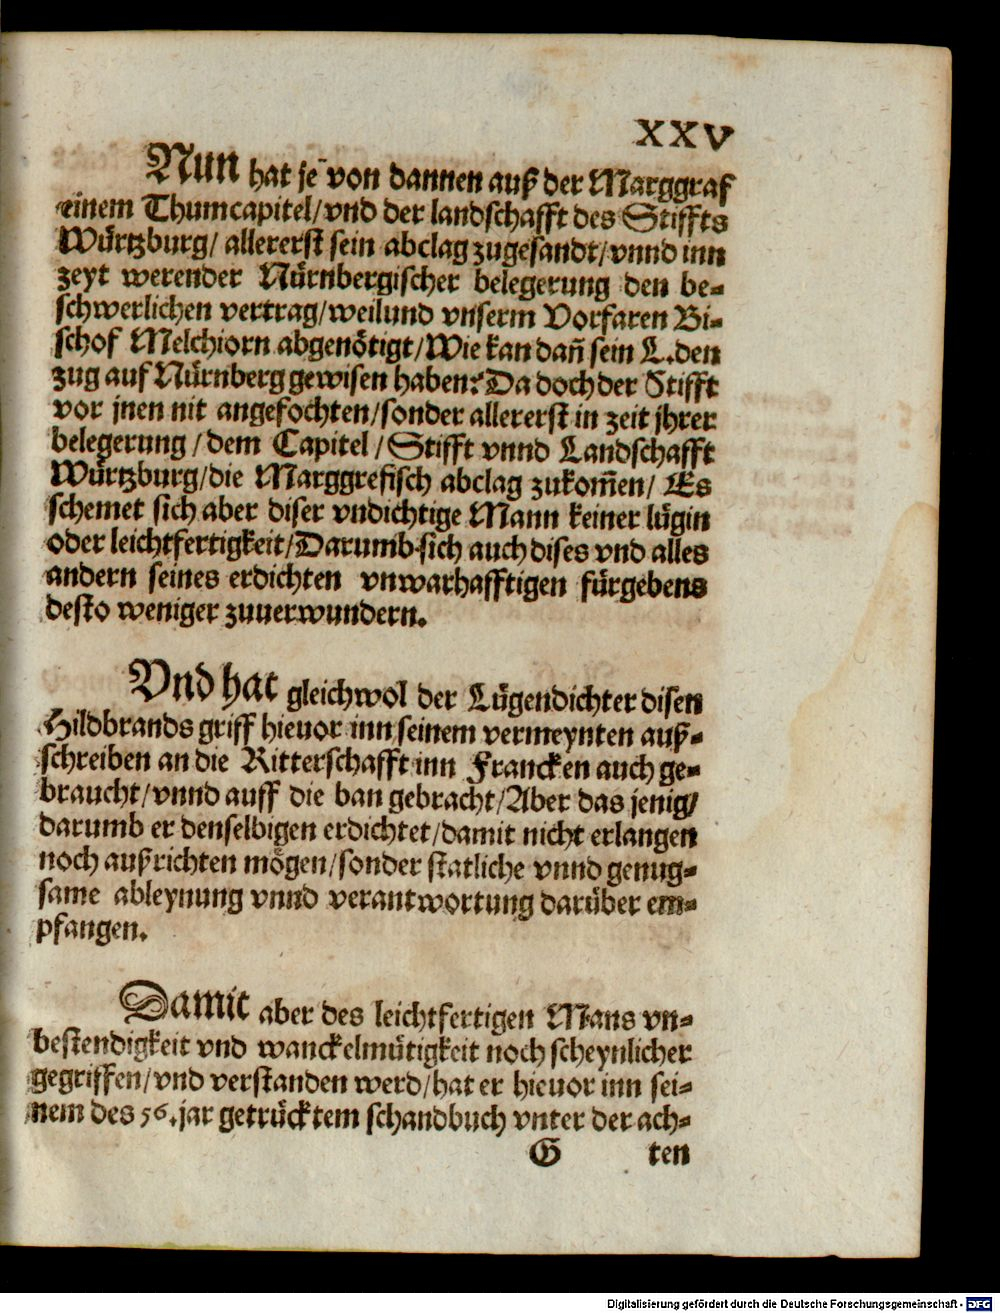 XXV
Nun hat je von dannen auß der Marggraf
einem Thumcapitel/vnd der landschafft des Stiffts
Würtzburg/ allererst sein abclag zugesandt/vnnd inn
zeyt werender Nürnbergischer belegerung den be-
schwerlichen vertrag/weilund vnserm Vorfaren Bi-
schof Melchiorn abgenötigt/Wie kan dañ sein L.den
zug auf Nürnberg gewisen haben? Da doch der Stifft
vor jnen nit angefochten/sonder allererst in zeit jhrer
belegerung /dem Capitel /Stifft vnnd Landschafft
Würtzburg/die Marggrefisch abclag zukom̃en/ Es
schemet sich aber diser vndichtige Mann keiner lügin
oder leichtfertigkeit/Darumb sich auch dises vnd alles
andern seines erdichten vnwarhafftigen fürgebens
desto weniger zuuerwundern.
Vnd hat gleichwol der Lügendichter disen
Hildbrands griff hieuor inn seinem vermeynten auß-
schreiben an die Ritterschafft inn Francken auch ge-
braucht/vnnd auff die ban gebracht/Aber das jenig/
darumb er denselbigen erdichtet/damit nicht erlangen
noch außrichten mögen/sonder statliche vnnd genug-
same ableynung vnnd verantwortung darüber em-
pfangen.
Damit aber des leichtfertigen Mans vn-
bestendigkeit vnd wanckelmütigkeit noch scheynlicher
gegriffen/vnd verstanden werd/hat er hieuor inn sei-
nem des 56.jar getrücktem schandbuch vnter der ach-
G ten
Digitalisierung gefördert durch die Deutsche Forschungsgemeinschaft - DFG